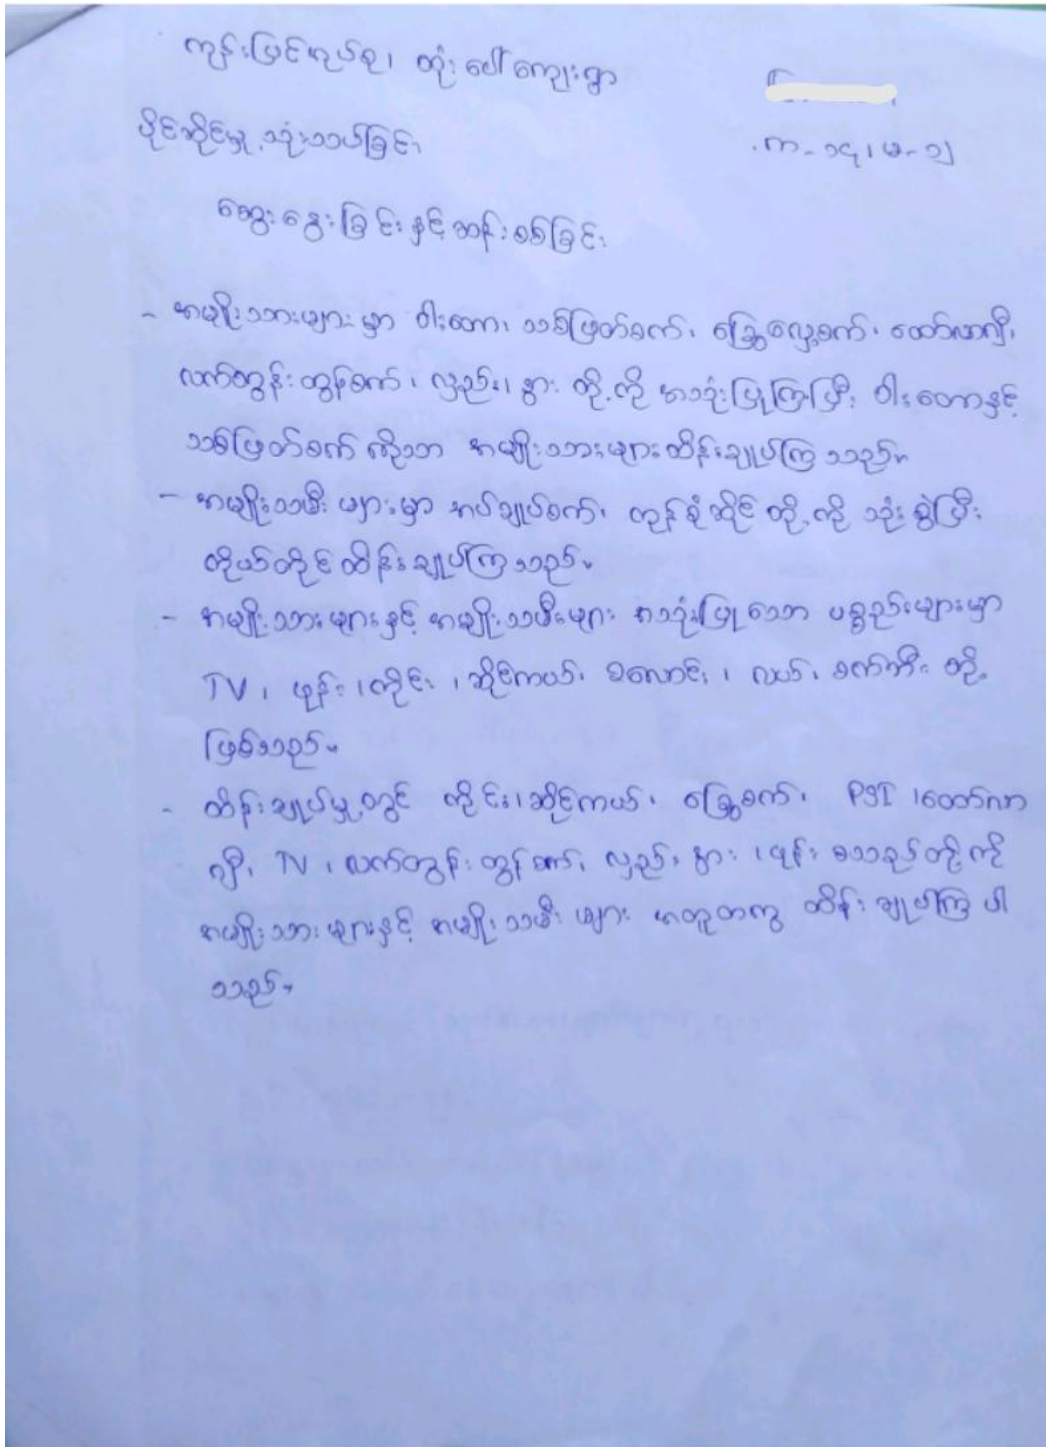 ကျွန်းမြင်အုပ်စု၊ တုံးပေါ်ကျေးရွာ
ပိုင်ဆိုင်မှု့သုံးသပ်ခြင်း
က-၁၄၊ မ-၁၂
ဆွေးနွေးခြင်းနှင့်ဆန်းစစ်ခြင်း
- အမျိုးသားများမှာ ဝါးတော၊ သစ်ဖြတ်စက်၊ ခြွေလှေ့စက်၊ ထော်လာဂျီ၊
လက်တွန်းထွန်စက်၊ လှည်း၊ နွား တို့ကို အသုံးပြုကြပြီး ဝါးတောနှင့်
သစ်ဖြတ်စက် ကိုသာ အမျိုးသားများထိန်းချုပ်ကြသည်။
- အမျိုးသမီးများမှာ အပ်ချုပ်စက်၊ ကုန်စုံဆိုင် တို့ကို သုံးစွဲပြီး
ကိုယ်တိုင်ထိန်းချုပ်ကြသည်။
- အမျိုးသားများနှင့် အမျိုးသမီးများ အသုံးပြုသော ပစ္စည်းများမှာ
TV၊ ဖုန်း၊ ကိုင်း၊ ဆိုင်ကယ်၊ ၊ လယ်၊ စက်ဘီး တို့
ဖြစ်သည်။
- ထိန်းချုပ်မှု့တွင် ကိုင်း၊ ဆိုင်ကယ်၊ ခြွေစက်၊ PSI ၊ထော်လာ
ဂျီ၊ TV ၊ လက်တွန်းထွန်စက်၊ လှည်း၊ နွား ၊ ဖုန်း စသည်တို့ကို
အမျိုးသားများနှင့် အမျိုးသမီးများ အတူတကွ ထိန်းချုပ်ကြပါ
သည်။